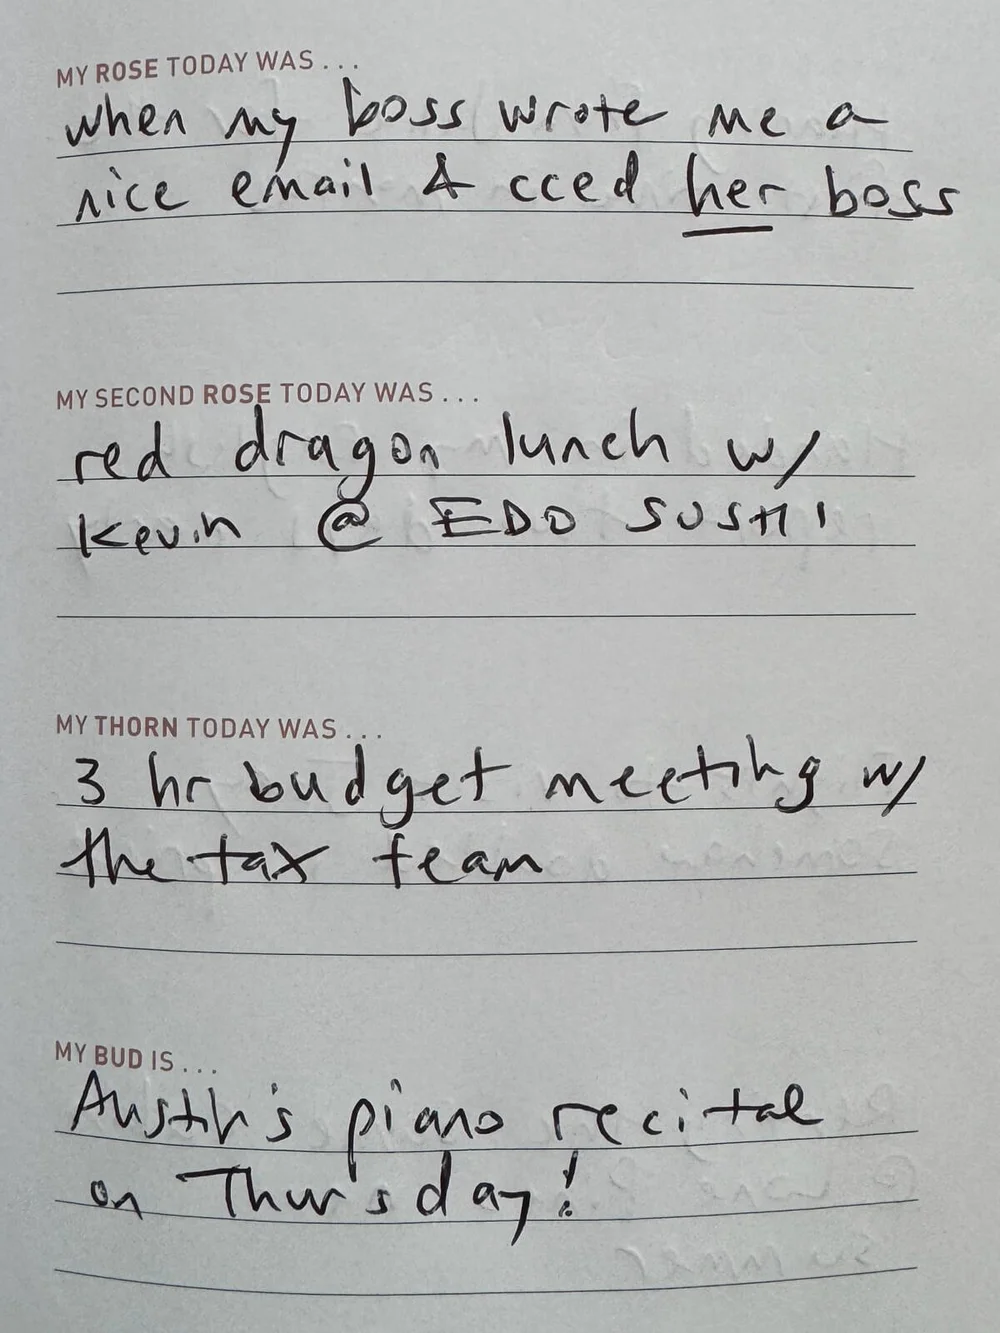 MY ROSE TODAY WAS...
when my boss wrote me a
nice email & cced her boss
MY SECOND ROSE TODAY WAS...
red dragon lunch w/
Kevin @ EDO SUSHI
MY THORN TODAY WAS...
3 hr budget meeting w/
the tax team
MY BUD IS...
Austin's piano recital
on Thursday!